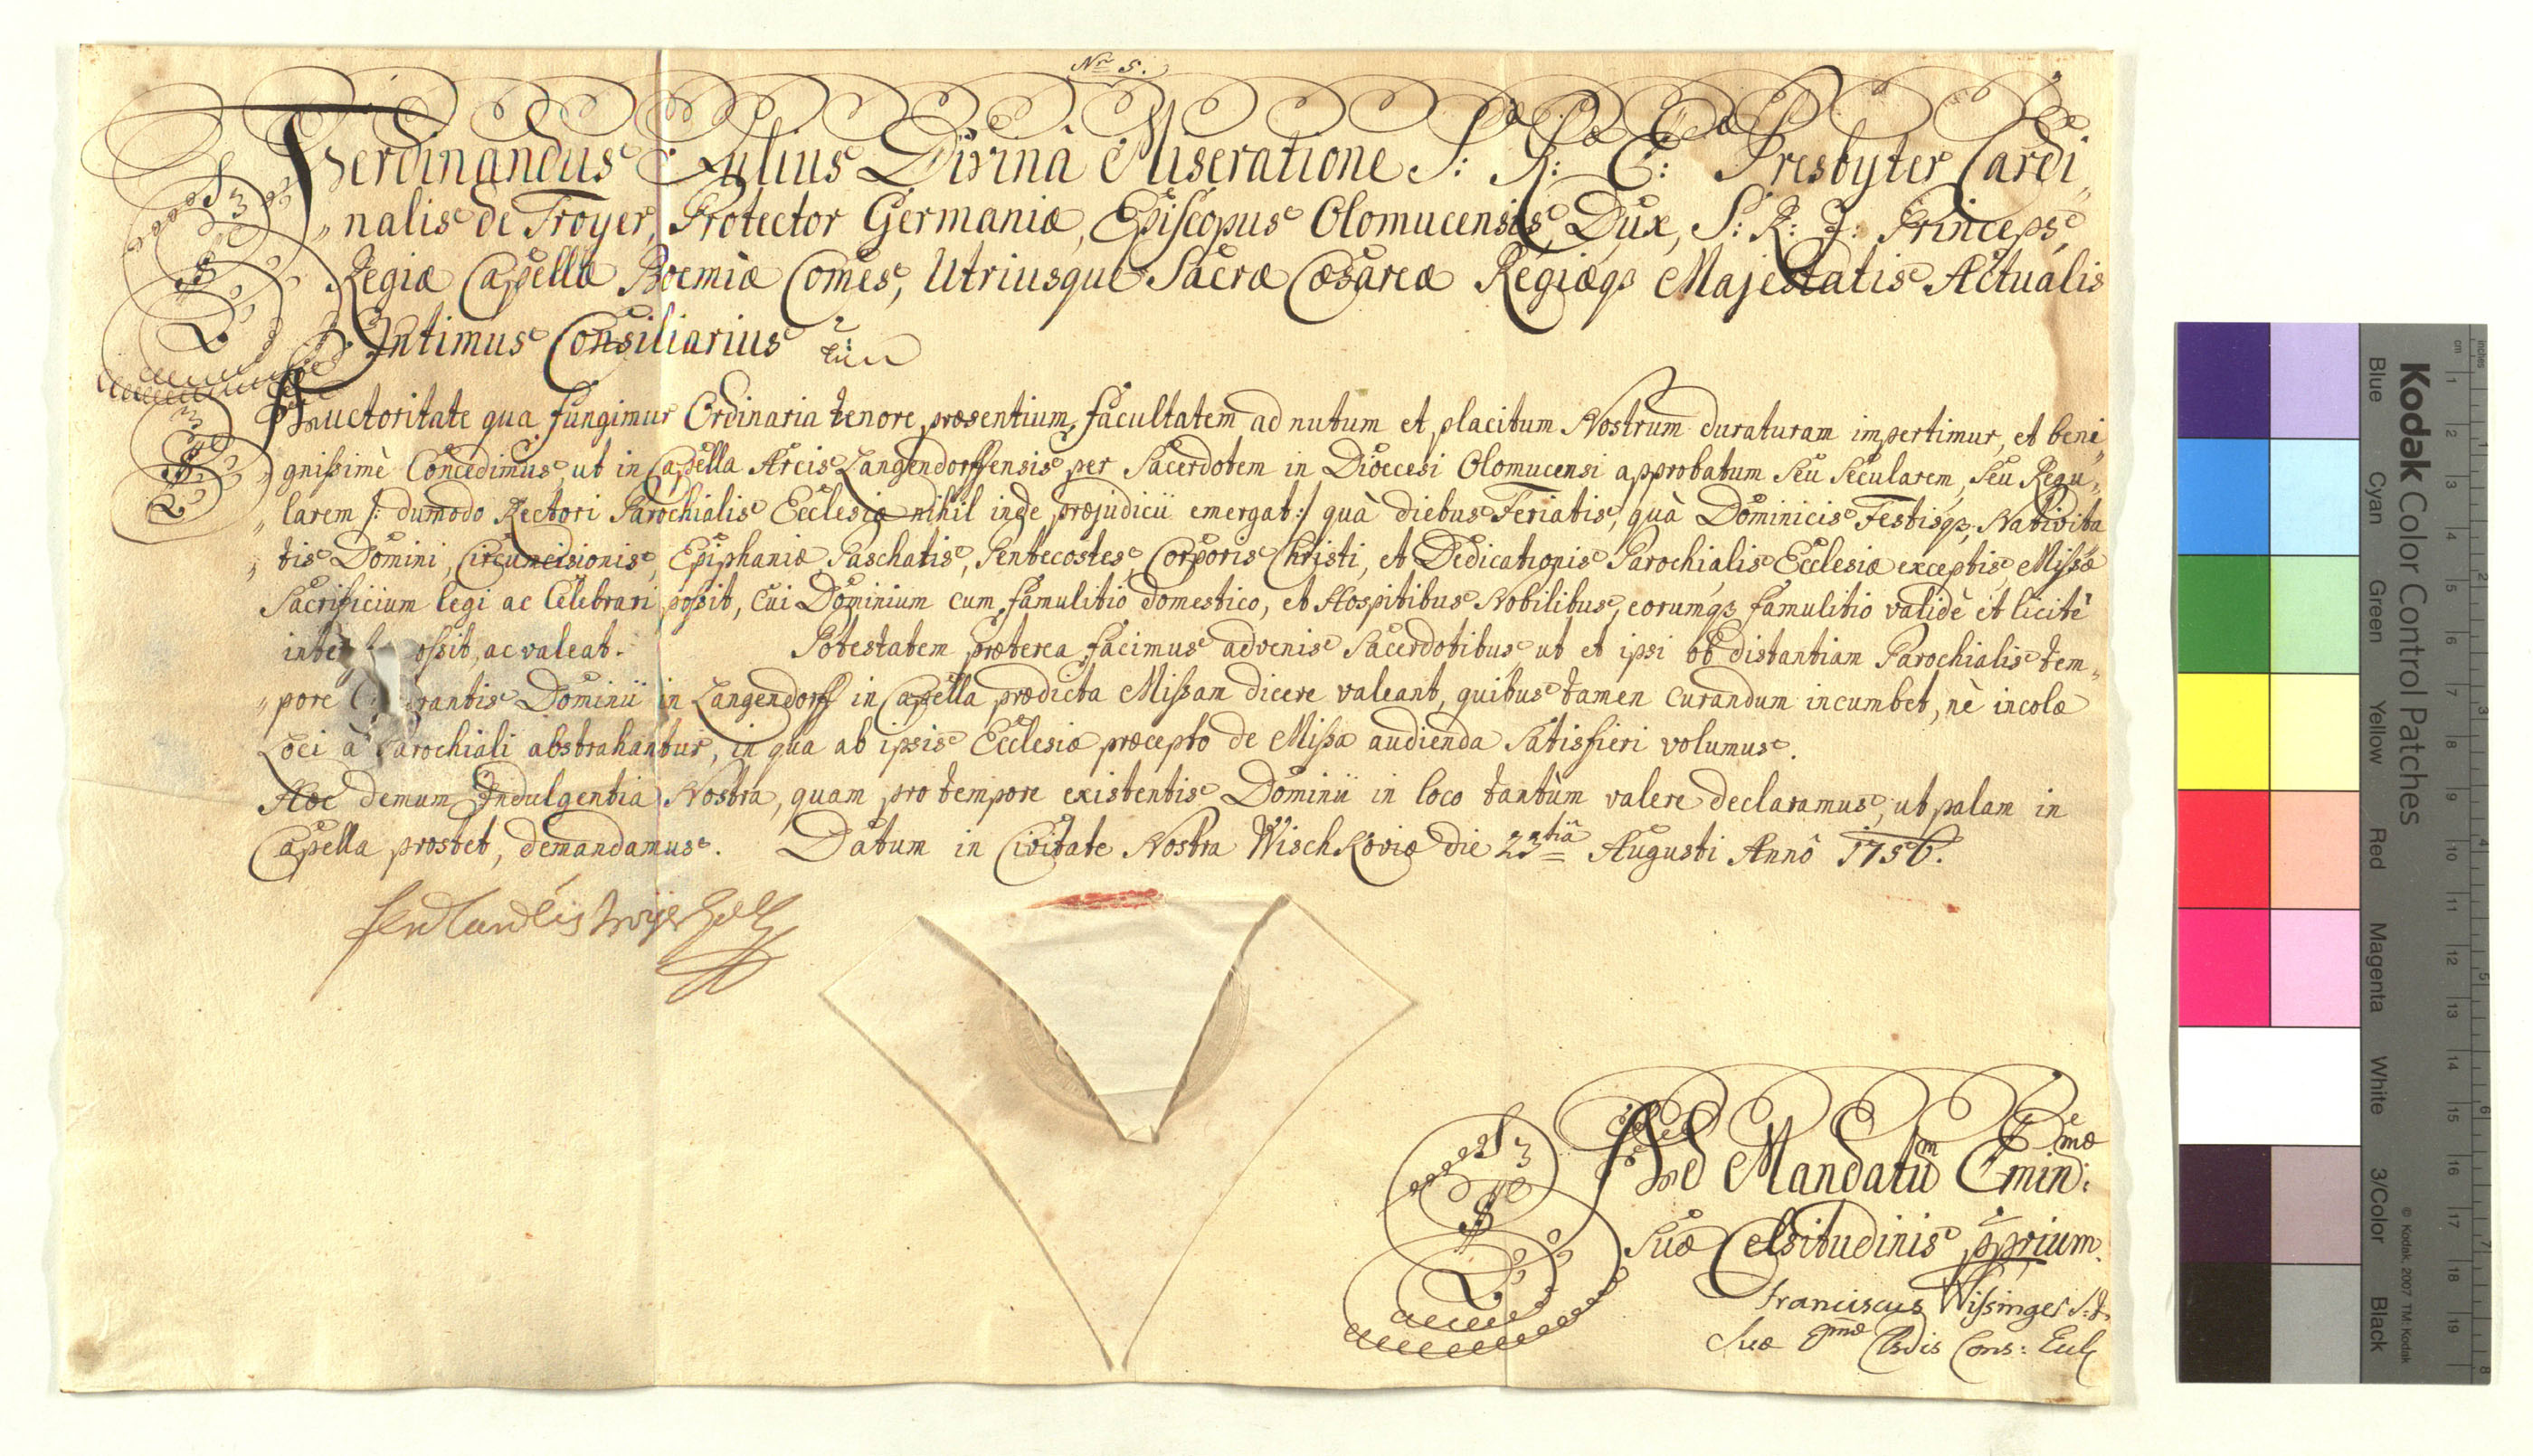 Nro 5.
Ferdinandus Julius Divinâ Miseratione S: R: E: Presbyter Cardi„
„nalis de Troyer, Protector Germaniæ, Episcopus Olomucensis, Dux, S: R: J: Princeps,
Regiæ Capellæ Boemiæ Comes, Utriusque Sacræ Cæsareæ Regiæq3 Majestatis Actualis
Intimus Consiliarius
Auctoritate qua fungimur Ordinaria tenore præsentium, facultatem ad nutum et placitum Nostrum duraturam impertimur, et beni„
„gnissimè Concedimus, ut in Capella Arcis Langendorffensis per Sacerdotem in Dioecesi Olomucensi approbatum seu Secularem, seu Regu„
„larem /: dumodo Rectori Parochialis Ecclesiæ nihil inde præjudicii emergat :/ quà diebus Feriatis, quà Dominicis Festisq3, Nativita
„tis Domini, Circumcisionis, Epiphaniæ, Paschatis, Pentecostes, Corporis Christi, et Dedicationis Parochialis Ecclesiæ exceptis, Missæ
Sacrificium legi ac Celebrari possit, cui Dominium cum famulitio domestico, et Hospitibus Nobilibus, eorumq3 famulitio validè et licitè
inte ossit, ac valeat. Potestatem præterea facimus advenis Sacerdotibus ut et ipsi ob distantiam Parochialis tem„
„pore rantis Dominii in Langendorff in Capella prædicta Missam dicere valeant, quibus tamen curandum incumbet, nè incolæ
Loci à Parochiali abstrahantur, in qua ab ipsis Ecclesiæ præcepto de Missa audienda Satisfieri volumus.
Hoc demum Indulgentia Nostra, quam pro tempore existentis Dominii in loco tantùm valere declaramus, ut palam in
Capella prostet, demandamus. Datum in Civitate Nostra Wischkoviæ die 23tiâ Augusti Annô 1756.
Ad Mandatum Emin: mæ
Suæ Celsitudinis pprium.
Franciscus Wissinger
Suæ Emæ Clsdis Cons: Eccl
Kodak Color Control Patches
Blue
Cyan
Green
Yellow
Red
Magenta
White
3/Color
Black
© Kodak, 2007 TM: Kodak
inches
cm
1
2
3
4
5
6
7
8
9
10
11
12
13
14
15
16
17
18
19
1
2
3
4
5
6
7
8